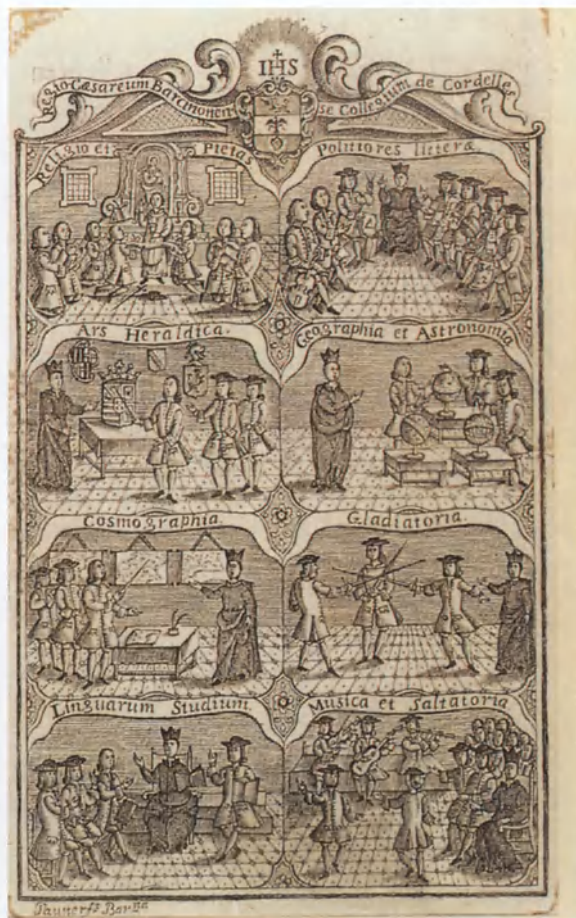 IHS
Regio-Cæsareum Barcinonen
se Collegium de Cordelles
Religio et Pietas
Politiores litteræ.
Ars Heraldica.
Geographia et Astronomia
Cosmographia
Gladiatoria.
Linguarum Studium
Musica et Saltatoria
Barna